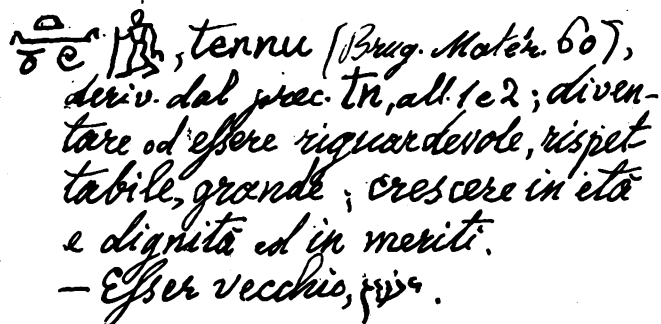 , tennu (Brug. Matér. 60),
deriv. dal prec. tn, all. 1 e 2; diven-
tare od essere riguardevole, rispet-
tabile, grande; crescere in età
e dignità ed in meriti.
— Esser vecchio,